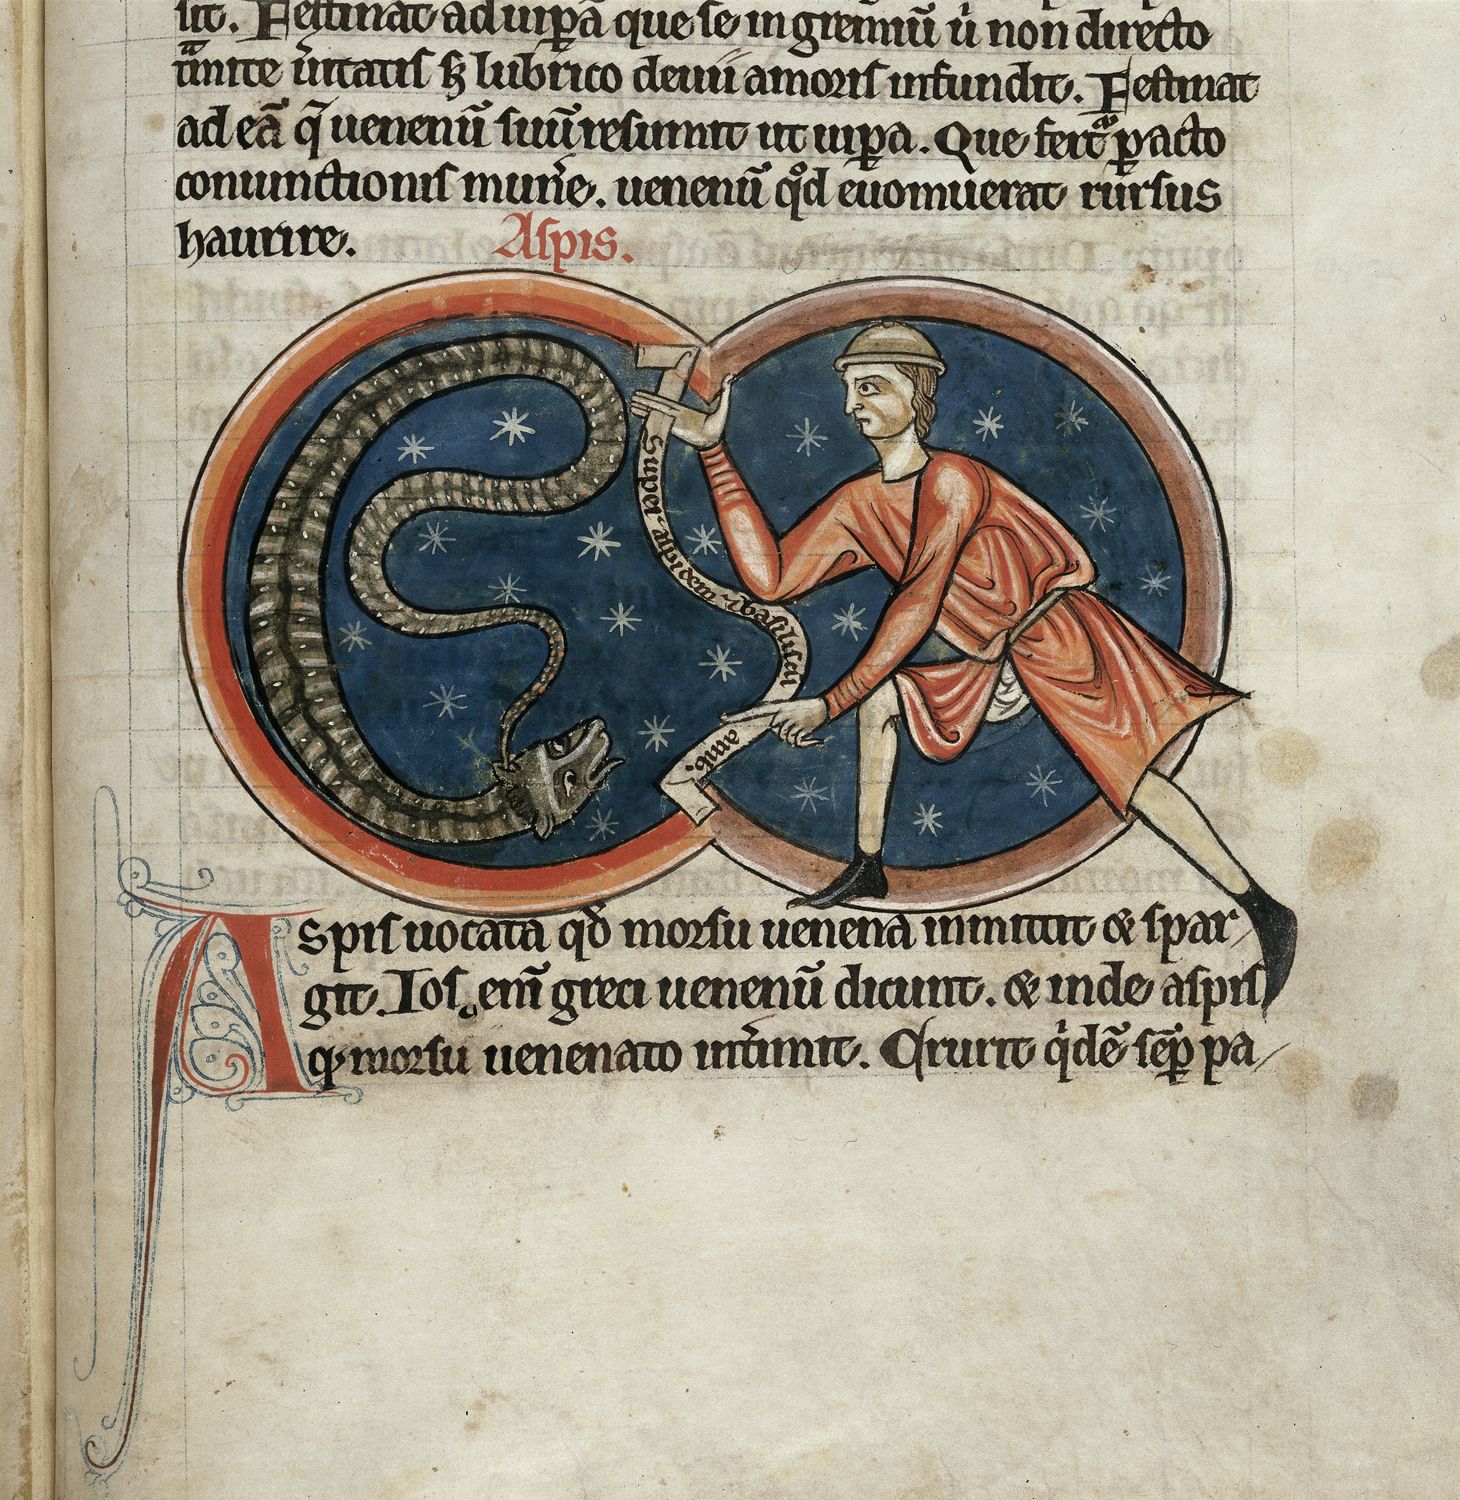 sit. Festinat ad uip̄ā que se in gremiū ui non directo
tͣmite ūitatis sꝫ lubrico deuii amoris infundit. Festinat
ad eā q̄ uenenū suū resumit ut uip̄a. Que fertͣ pacto
coniunctionis munē. uenenū qͦd euomuerat rursus
haurire. Aspis.
Super aspidem ⁊ basiliscū
amb.
Aspis uocata qd̄ morsu uenena inmittit & spar
git. Ios. em̄ greci uenenū dicunt. & inde aspis
qꝫ morsu uenenato intimit. Currit qͥdē semp pa